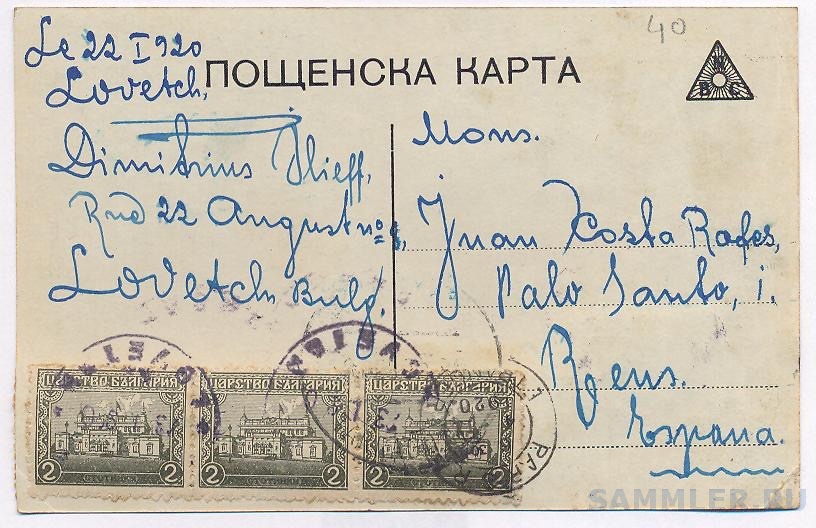 40
Le 22 I 920
Lovetch,
ПОЩЕНСКА КАРТА
Dimitrius Ilieff,
Rue 22 August no
Lovetch Bulg.
Mons.
Juan Costa Rofes,
Palo Santo, 1.
Reus.
Espana.
ЦАРСТВО БЪЛГАРИЯ
2 СТОТИНКИ 2
ЦАРСТВО БЪЛГАРИЯ
2 СТОТИНКИ 2
ЦАРСТВО БЪЛГАРИЯ
2 СТОТИНКИ 2
SAMMLER.RU